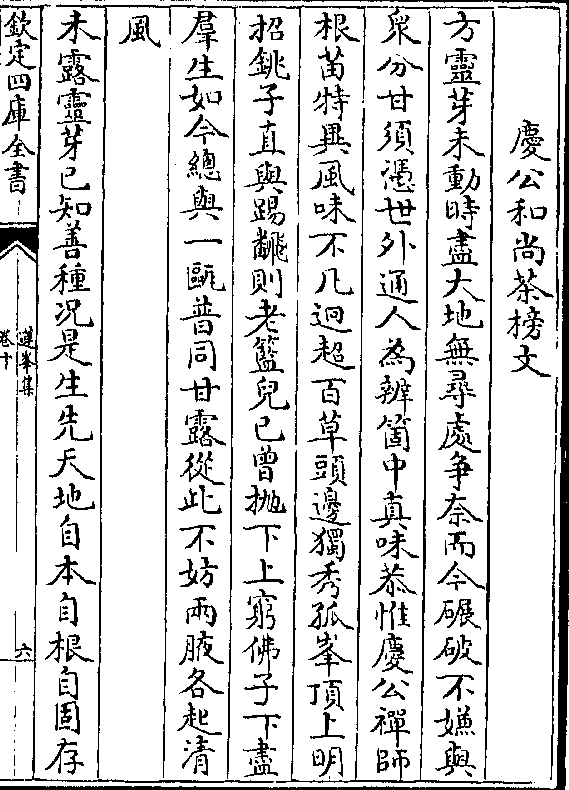 慶公和尚茶榜文
方靈芽未動時盡大地無尋處争奈而今碾破不嫌與
衆分甘須憑世外通人為辨箇中真味恭惟慶公禪師
根苗特異風味不凡迥超百草頭邊獨秀孤峯頂上明
招銚子直與踢飜則老籃兒已曾抛下上窮佛子下盡
羣生如今總與一甌普同甘露從此不妨兩腋各起清
風
未露靈芽已知善種况是生先天地自本自根自固存
欽定四庫全書
蓮峯集
卷十
六